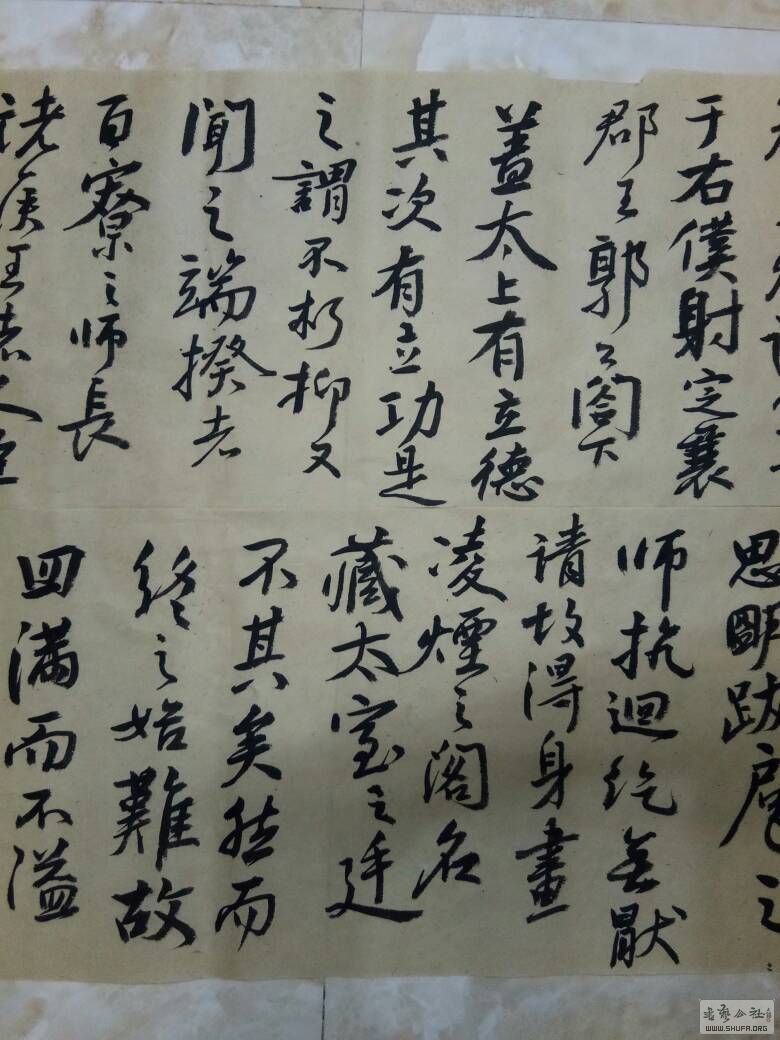 于右僕射定襄
郡王郭公閤下
蓋太上有立德
其次有立功是
之謂不朽抑又
聞之端揆者
百寮之师長
諸侯王者人臣
思明跋扈之
师抗迴纥無厭
請故得身畫
凌煙之閣名
藏太室之廷
不其矣然而
終之始難故
滿而不溢
书艺公社
WWW.SHUFA.ORG